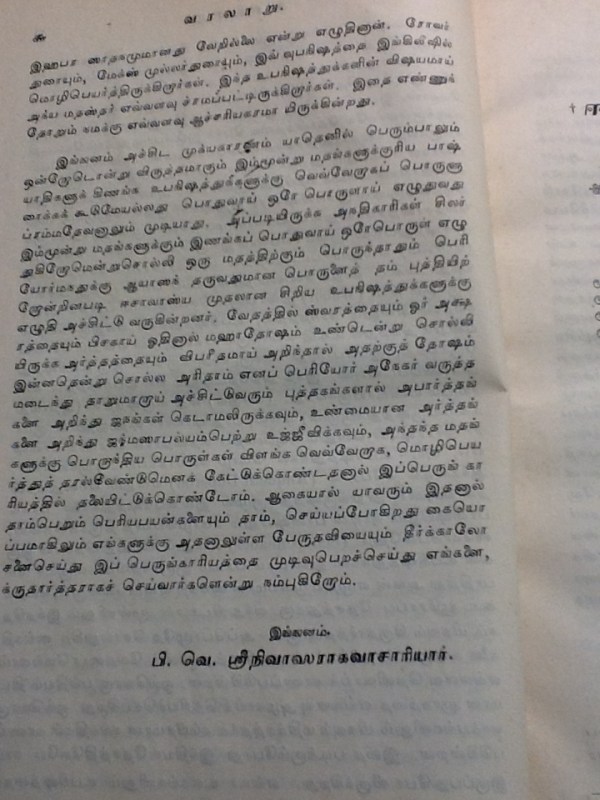 வரலாறு.
௬
இஹபர ஸாதகமுமானது வேறில்லை என்று எழுதினான். ரோவர்
துரையும், மேக்ஸ் முல்லர்துரையும், இவ் வுபநிஷத்தை இங்கிலீஷில்
மொழிபெயர்த்திருக்கிறார்கள். இந்த உபநிஷத்துக்களின் விஷயமாய்
அந்ய மதஸ்தர் எவ்வளவு ச்ரமப்பட்டிருக்கிறார்கள். இதை எண்ணுந்
தோறும் நமக்கு எவ்வளவு ஆச்சரியகரமா யிருக்கின்றது.
இங்ஙனம் அச்சிட முக்யகாரணம் யாதெனில் பெரும்பாலும்
ஒன்றோடொன்று விருத்தமாகும் இம்மூன்று மதங்களுக்குரிய பாஷ்
யாதிகளுக் கிணங்க உபநிஷத்துக்களுக்கு வெவ்வேறாகப் பொருளு
ரைக்கக் கூடுமேயல்லது பொதுவாய் ஒரே பொருளாய் எழுதுவது
ப்ரம்மதேவனாலும் முடியாது. அப்படியிருக்க அநதிகாரிகள் சிலர்
இம்மூன்று மதங்களுக்கும் இணங்கப் பொதுவாய் ஒரேபொருள் எழு
துகிறோமென்றுசொல்லி ஒரு மதத்திற்கும் பொருந்தாதும் பெரி
யோர்மநதுக்கு ஆயாஸந் தருவதுமான பொருளைத் தம் புத்தியிற்
றோன்றினபடி ஈசாவாஸ்ய முதலான சிறிய உபநிஷத்துக்களுக்கு
எழுதி அச்சிட்டு வருகின்றனர். வேதத்தில் ஸ்வரத்தையும் ஓர் அக்ஷ
ரத்தையும் பிசகாய் ஓதினால் மஹாதோஷம் உண்டென்று சொல்லி
யிருக்க அர்த்தத்தையும் விபரீதமாய் அறிந்தால் அதற்குத் தோஷம்
இன்னதென்று சொல்ல அரிதாம் எனப் பெரியோர் அநேகர் வருத்த
மடைந்து தாறுமாறாய் அச்சிட்டுவரும் புத்தகங்களால் அபார்த்தங்
களை அறிந்து ஜநங்கள் கெடாமலிருக்கவும், உண்மையான அர்த்தங்
களை அறிந்து ஜந்மஸாபல்யம்பெற்று உஜ்ஜீவிக்கவும், அந்தந்த மதங்
களுக்கு பொருந்திய பொருள்கள் விளங்க வெவ்வேறாக, மொழிபெய
ர்த்துத் தரல்வேண்டுமெனக் கேட்டுக்கொண்டதனால் இப்பெருங் கா
ரியத்தில் தலையிட்டுக்கொண்டோம். ஆகையால் யாவரும் இதனால்
தாம்பெறும் பெரியபயன்களையும் தாம், செய்யப்போகிறது கையொ
ப்பமாகிலும் எங்களுக்கு அதனாலுள்ள பேருதவியையும் தீர்க்காலோ
சனைசெய்து இப் பெருங்காரியத்தை முடிவுபெறச்செய்து எங்களை,
க்ருதார்த்தராகச் செய்வார்களென்று நம்புகிறோம்.
இங்ஙனம்.
பி. வெ. ஸ்ரீநிவாஸராகவாசாரியார்.